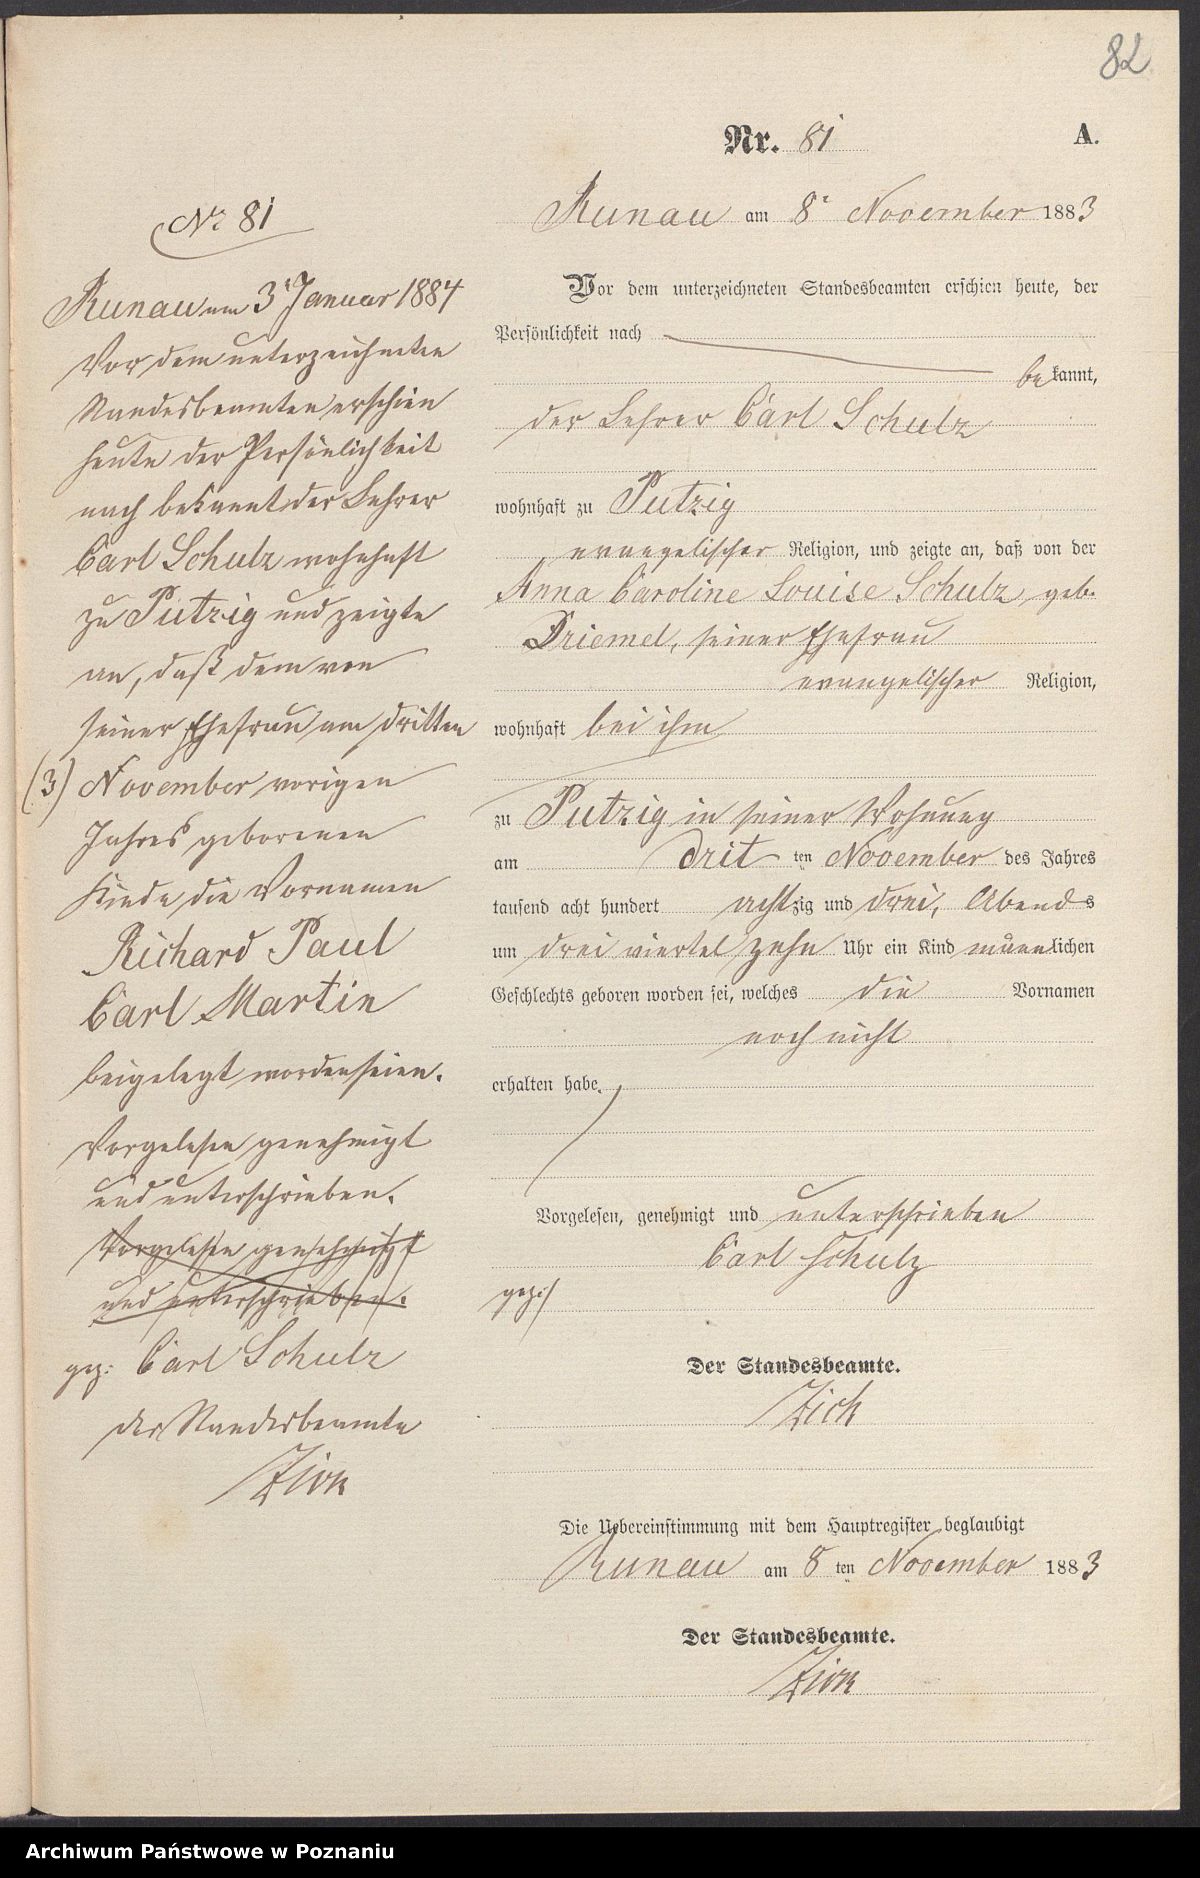 82
Nr. 81 A.
Runau am 8t November 1883
Vor dem unterzeichneten Standesbeamten erschien heute, der
Persönlichkeit nach
bekannt,
der Lehrer Carl Schulz
wohnhaft zu Putzig
evangelischer Religion, und zeigte an, daß von der
Anna Caroline Louise Schulz, geb.
Driemel, seiner Ehefrau
evangelischer Religion,
wohnhaft bei ihm
zu Putzig in seiner Wohnung
am dritten November des Jahres
tausend acht hundert achtzig und drei, Abends
um drei viertel zehn Uhr ein Kind männlichen
Geschlechts geboren worden sei, welches die Vornamen
noch nicht
erhalten habe.
Vorgelesen, genehmigt und unterschrieben
Carl Schulz
gez:
Der Standesbeamte.
Die Uebereinstimmung mit dem Hauptregister beglaubigt
Runau am 8 ten November 1883
Der Standesbeamte.
No 81
Runau am 3t Januar 1884
Vor dem unterzeichneten
Standesbeamten erschien
heute der Persönlichkeit
nach bekannt der Lehrer
Carl Schulz wohnhaft
zu Putzig und zeigte
an, daß dem von
seiner Ehefrau am dritten
(3) November vorigen
Jahres geborenen
Kinde die Vornamen
Richard Paul
Carl Martin
beigelegt worden seien.
Vorgelesen genehmigt
und unterschrieben.
Vorgelesen genehmigt
und unterschrieben.
gez: Carl Schulz
der Standesbeamte
Archiwum Państwowe w Poznaniu